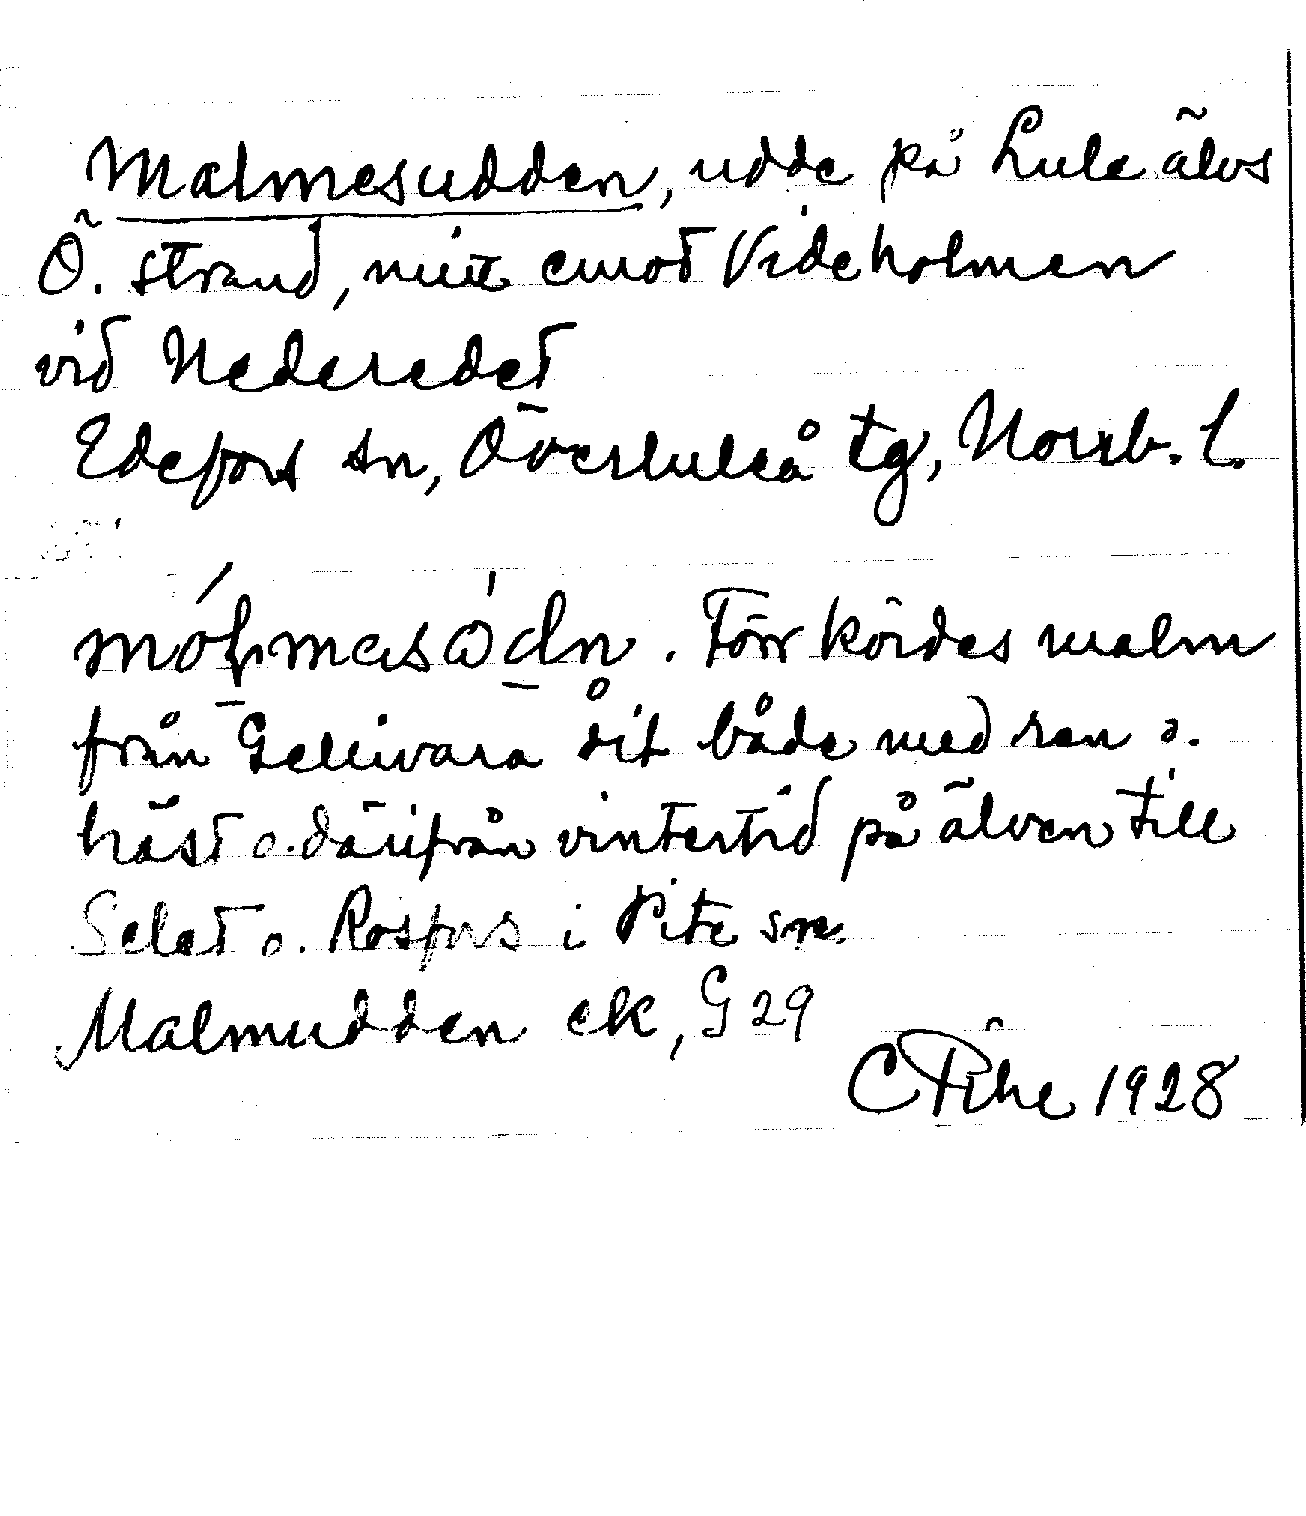 Malmesudden, udde på Lule älvs
Ö. strand, mitt emot Videholmen
vid Nederedet
Edefors sn, Överluleå tg, Norrb. l.
Förr kördes malm
från Gellivara dit både med ren o.
häst o. därifrån vintertid på älven till
Selet o. Rosfors i Pite sn.
Malmudden ek, G 29
C Pihl 1928